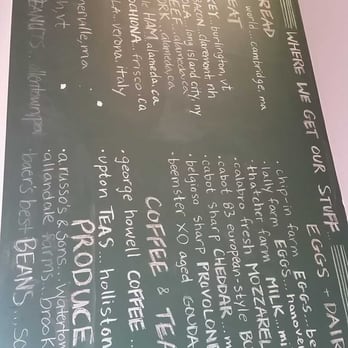 WHERE WE GET OUR STUFF
READ
world... cambridge, ma
EAT
KEY. burlington, vt
claremont nh
LA. long island city, ny
EEF. alameda, ca
RK. alameda, ca
HAM alameda, ca
frisco, ca
LA. verona italy
merville, ma
h, vt
EGGS + DAIR
• chip-in farm EGGS... be
• lally farm EGGS... hanover
• thatcher farm MILK... mi
• calabro fresh MOZZAREL
• cabot 83 european-style BU
• cabot sharp CHEDDAR... m
• belgioso sharp PROVOLON
• beemster XO aged GOUDA
COFFEE & TEA
• george howell COFFEE...
• upton TEAS... holliston
PRODUCE
• a. russo's & sons... waterto
• allandale farms... brook
• baer's best BEANS... so